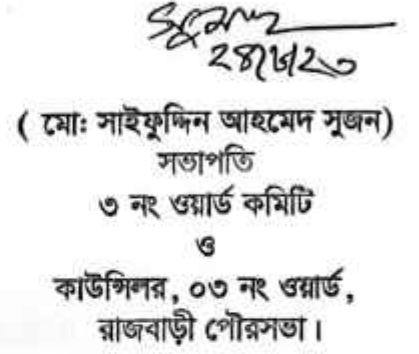 ( মোঃ সাইফুদ্দিন আহমেদ সুজন)
সভাপতি
৩ নং ওয়ার্ড কমিটি
ও
কাউন্সিলর, ০৩ নং ওয়ার্ড,
রাজবাড়ী পৌরসভা।